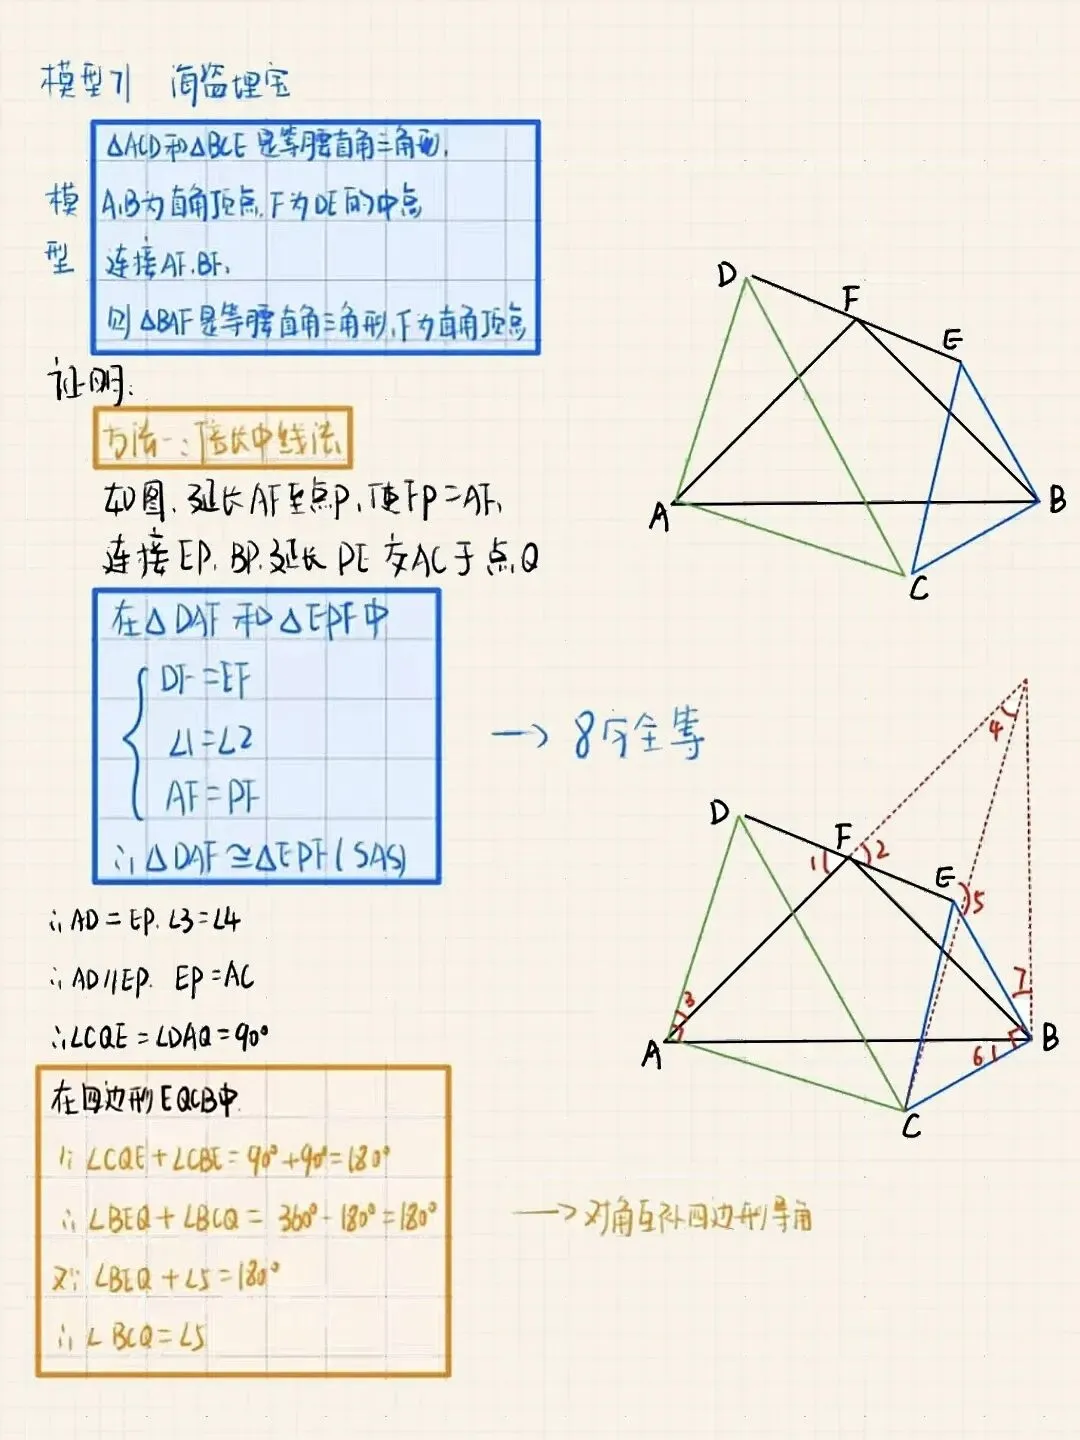 模型71 海盗埋宝
模型
△ACD和△BCE是等腰直角三角形,
A,B为直角顶点,F为DE的中点
连接AF,BF,
则△BAF是等腰直角三角形,F为直角顶点
证明:
方法一:倍长中线法
如图,延长AF至点P,使FP=AF,
连接EP,BP,延长PE交AC于点Q
在△DAF和△EPF中
DF=EF
∠1=∠2
AF=PF
∴△DAF≌△EPF(SAS)
→8字全等
∴AD=EP,∠3=∠4
∴AD//EP, EP=AC
∴∠CQE=∠DAQ=90°
在四边形EQCB中
∵∠CQE+∠CBE=90°+90°=180°
∴∠BEQ+∠BCQ=360°-180°=180°
又∵∠BEQ+∠5=180°
∴∠BCQ=∠5
→对角互补四边形导角
D
F
E
A
B
C
4
D
F
1
2
E
5
3
7
A
6
B
C